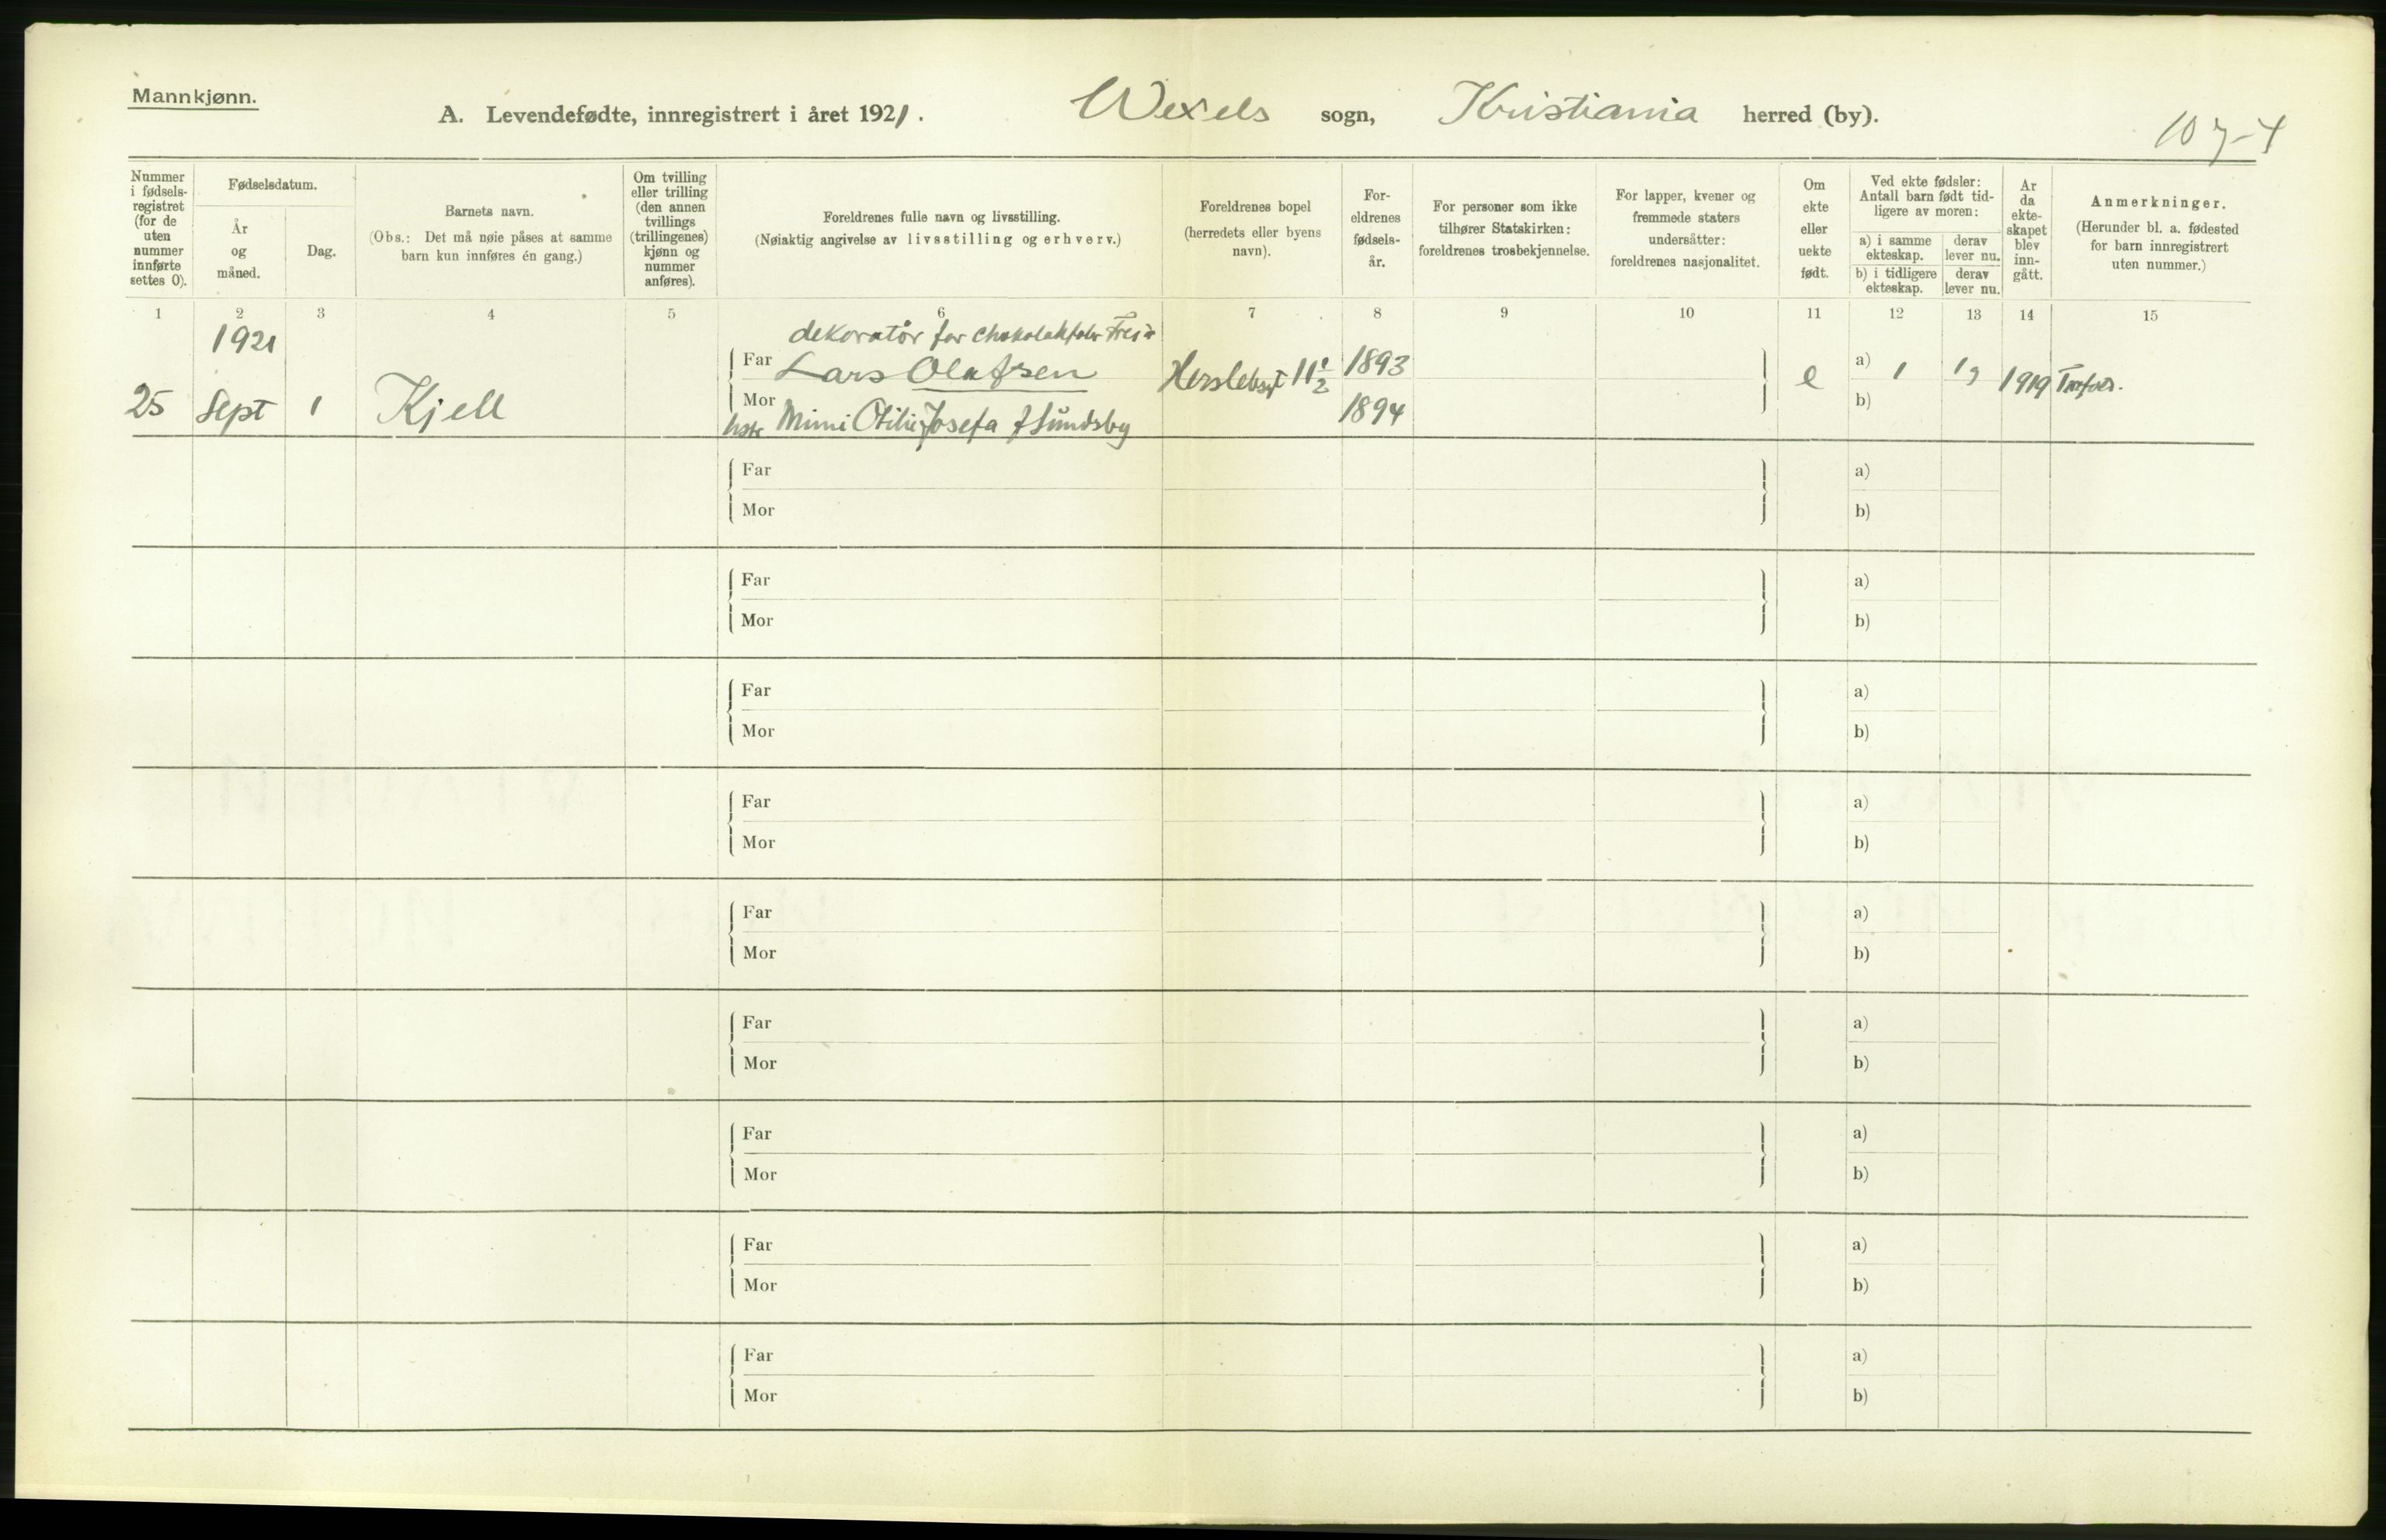 Mannkjønn.
A. Levendefødte, innregistrert i året 1921. Wexels sogn, Kristiania herred (by).
Nummer i fødsels-registret (for de uten nummer innførte settes 0).
Fødselsdatum.
År og måned.
Dag.
Barnets navn.
(Obs.: Det må nøie påses at samme barn kun innføres én gang.)
Om tvilling eller trilling (den annen tvillings (trillingenes) kjønn og nummer anføres).
Foreldrenes fulle navn og livsstilling.
(Nøiaktig angivelse av livsstilling og erhverv.)
Foreldrenes bopel (herredets eller byens navn).
For-eldrenes fødsels-år.
For personer som ikke tilhører Statskirken: foreldrenes trosbekjennelse.
For lapper, kvener og fremmede staters undersåtter: foreldrenes nasjonalitet.
Om ekte eller uekte født.
Ved ekte fødsler: Antall barn født tid-ligere av moren:
a) i samme ekteskap.
derav lever nu.
b) i tidligere ekteskap.
derav lever nu.
År da ekte-skapet blev inn-gått.
Anmerkninger.
(Herunder bl. a. fødested for barn innregistrert uten nummer.)
1 2 3 4 5 6 7 8 9 10 11 12 13 14 15
1921 dekoratør for
Far Lars Olafsen 1893 a) 1
25 Sept 1 Kjell e 1919
Mor Mimi Josefa f Sundsby 1894 b)
Far a)
Mor b)
Far a)
Mor b)
Far a)
Mor b)
Far a)
Mor b)
Far a)
Mor b)
Far a)
Mor b)
Far a)
Mor b)
Far a)
Mor b)
Far a)
Mor b)